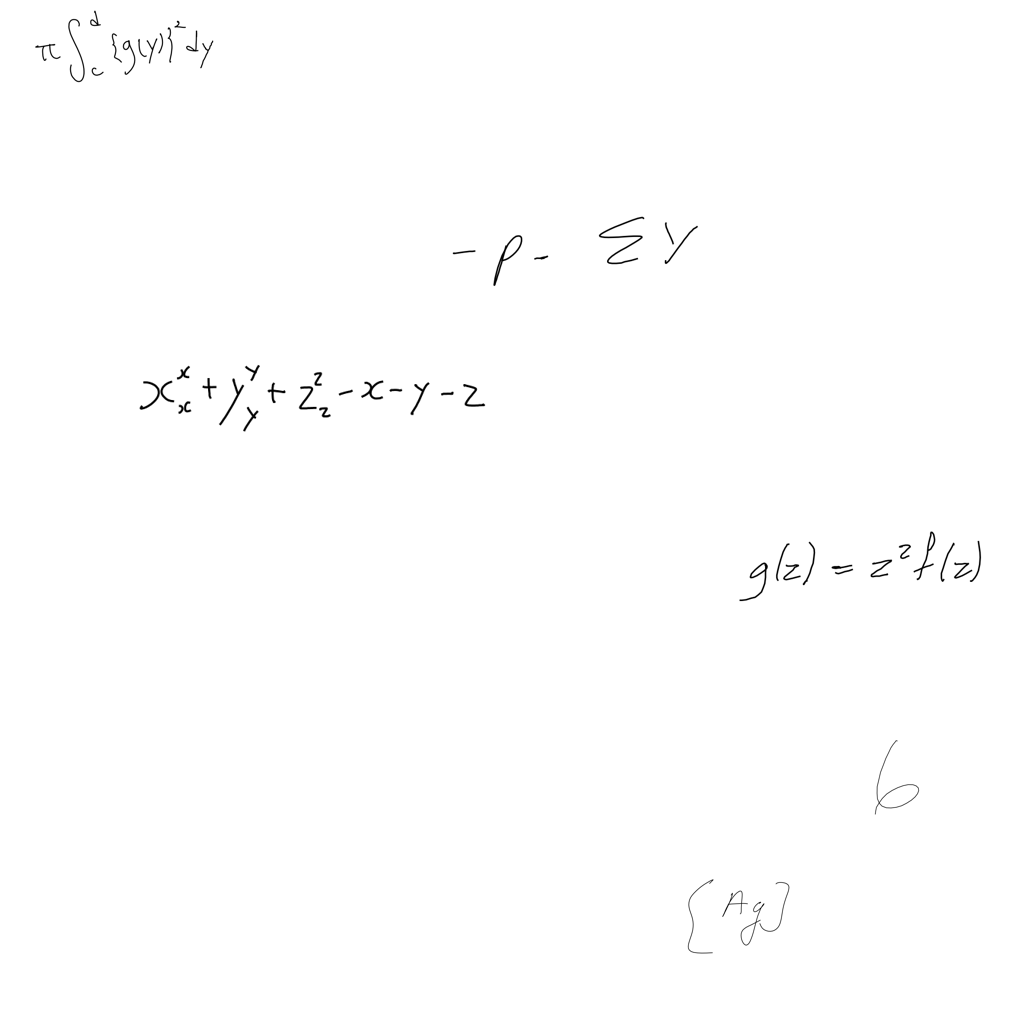 π∫_c^d {g(y)}² dy
-p- Σ y
x_x^x + y_y^y + z_z^z - x - y - z
g(z) = z² f(z)
6
[Ag]